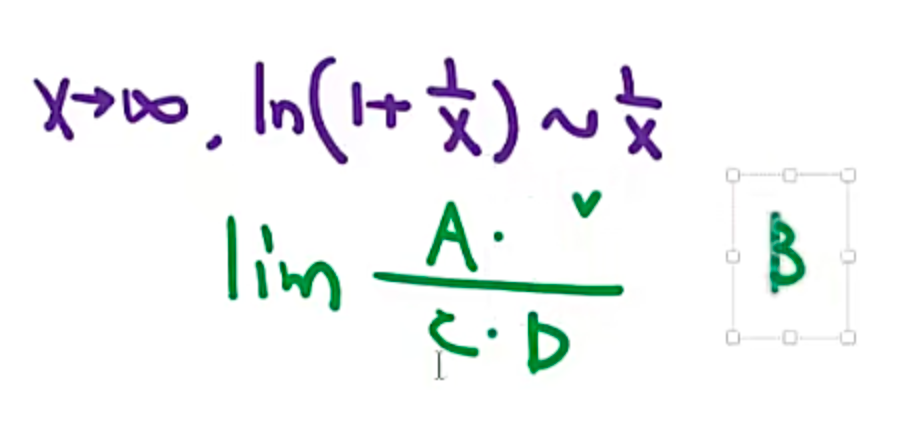 x→∞. ln(1+1/x)~1/x
lim (A· ᵛ)/(C·D) B